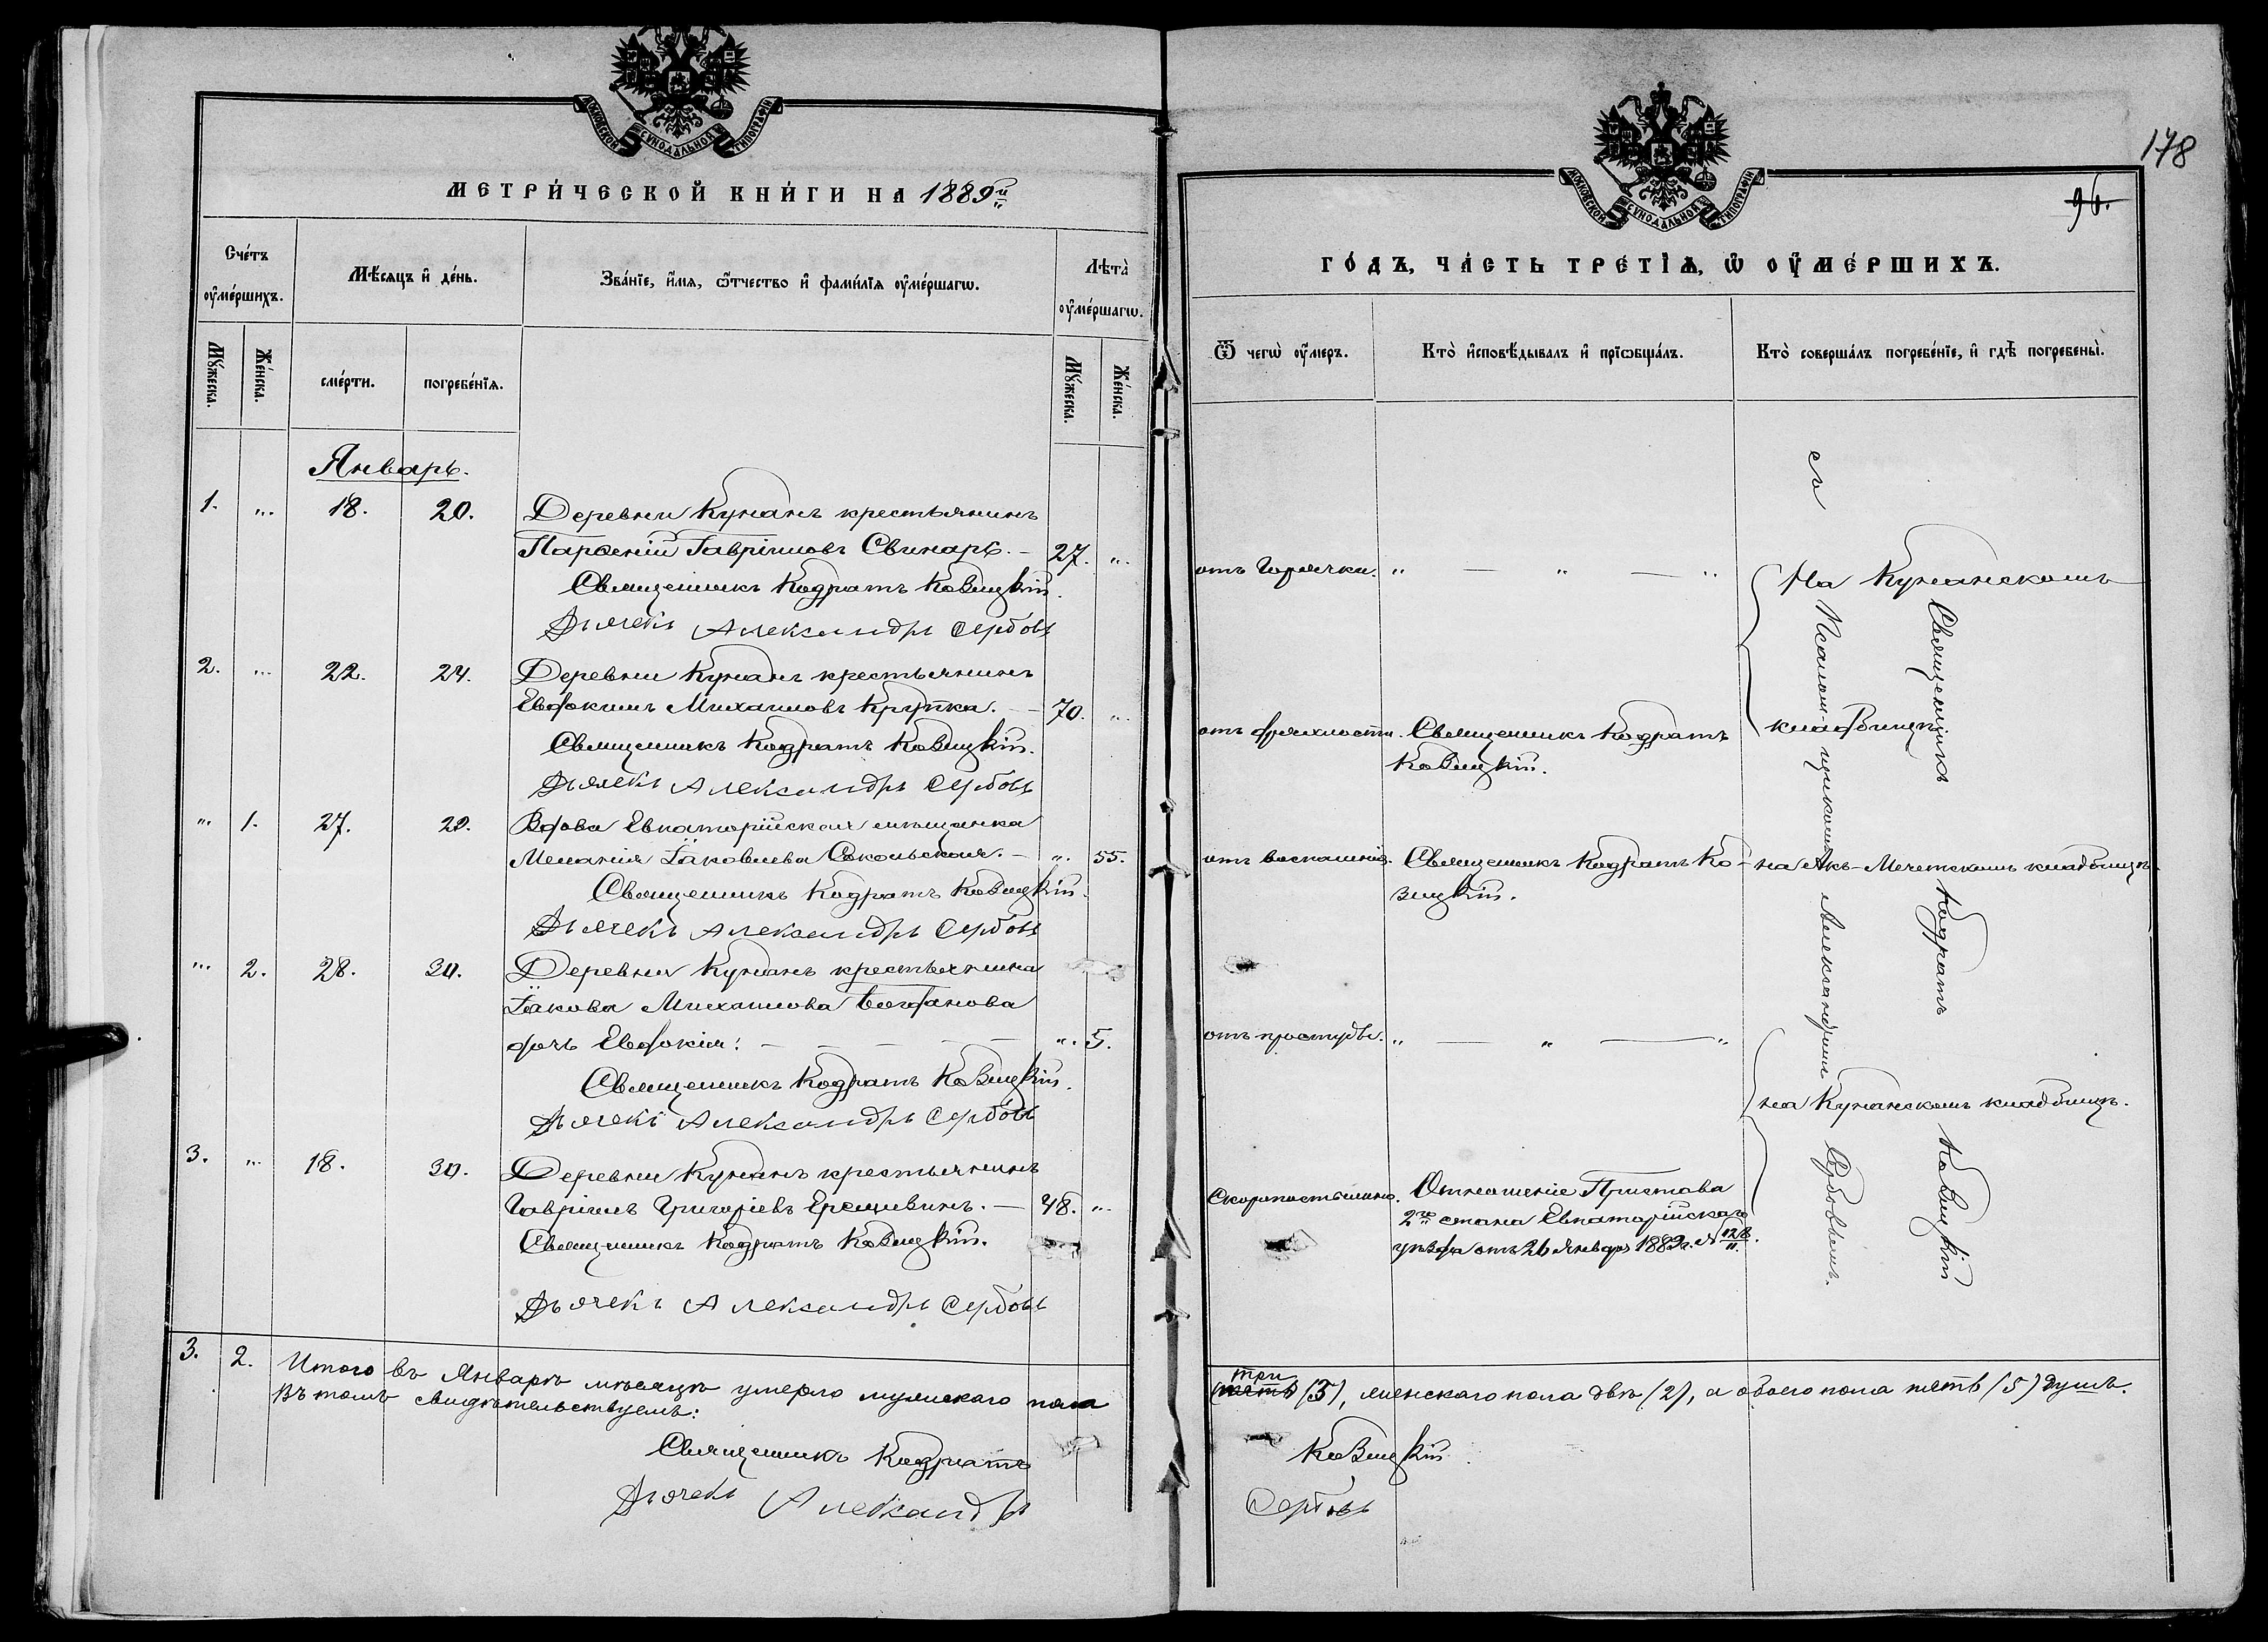 МОСКОВСКОЙ СѴНОДАЛЬНОЙ ТИПОГРАФІИ
МЕТРИ́ЧЕСКОЙ КНИ́ГИ НА 1889й
Сче́тъ ᲂу҆ме́ршихъ.
Мѣ́сяцъ и҆ де́нь.
Зва́нїе, и҆́мя, ѻ҆́тчество и҆ фами́лїя ᲂу҆ме́ршагѡ.
Лѣта̀ ᲂу҆ме́ршагѡ.
Мꙋ́жеска.
Же́нска.
сме́рти.
погребе́нїѧ.
Мꙋ́жеска.
Же́нска.
Январь.
1. „ 18. 20. Деревни Кунанъ крестьянинъ
Парѳеній Гавріиловъ Свинарь. — 27. „
Священникъ Кодратъ Козицкій.
Дьячекъ Александръ Сербовъ
2. „ 22. 24. Деревни Кунанъ крестьянинъ
Евдокимъ Михаиловъ Крупка. — 70. „
Священникъ Кодратъ Козицкій.
Дьячекъ Александръ Сербовъ
„ 1. 27. 29. Вдова Евпаторійская мѣщанка
Меланія Іаковлева Сокольская. — „ 55.
Священникъ Кодратъ Козицкій.
Дьячекъ Александръ Сербовъ
„ 2. 28. 30. Деревни Кунанъ крестьянина
Іакова Михаилова Богданова
дочь Евдокія: — „ 5.
Священникъ Кодратъ Козицкій.
Дьячекъ Александръ Сербовъ
3. „ 18. 30. Деревни Кунанъ крестьянинъ
Гавріилъ Григоріевъ — 48. „
Священникъ Кодратъ Козицкій.
Дьячекъ Александръ Сербовъ
3. 2. Итого въ Январѣ мѣсяцѣ умерло мужескаго пола
Въ томъ свидѣтельствуемъ:
Священникъ Кодратъ
Дьячекъ Александръ
178
96.
МОСКОВСКОЙ СѴНОДАЛЬНОЙ ТИПОГРАФІИ
ГО́ДЪ, ЧА́СТЬ ТРЕ́ТЇѦ, Ѡ҆ ОУ҆МЕ́РШИХЪ.
Ѿ чегѡ̀ ᲂу҆́меръ.
Кто̀ и҆сповѣ́дывалъ и҆ прїѡбща́лъ.
Кто̀ соверша́лъ погребе́нїе, и҆ гдѣ̀ погребены̀.
отъ горячки. „ — „ — „
На Кунанскомъ
отъ дряхлости. Священникъ Кодратъ
Козицкій.
кладбищѣ
отъ воспаленія. Священникъ Кодратъ Ко-
зицкій.
на Акъ-Мечетскомъ кладбищѣ.
отъ простуды. „ — „ — „
на Кунанскомъ кладбищѣ.
Скоропостижно. Отношеніе Пристава
2го стана Евпаторійскаго
уѣзда отъ 26 Января 1889 г. № 128/11.
Священникъ Кодратъ Козицкій
съ Псаломщикомъ Александромъ Сербовымъ.
три
(пять) (3), женскаго пола двѣ (2), а обоего пола пять (5) душъ.
Козицкій
Сербовъ